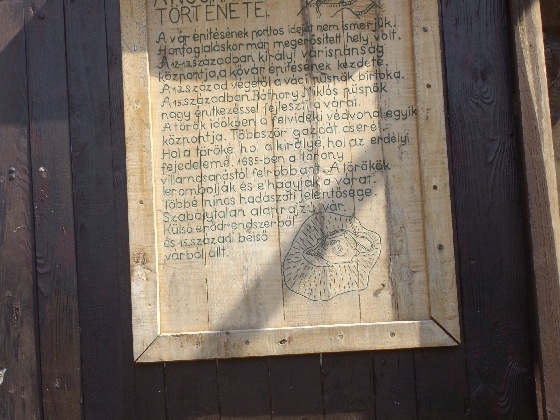 TÖRTÉNETE.
A vár építésének pontos idejét nem ismerjük.
Honfoglaláskor már megerősített hely volt.
A 12-13.században királyi várispánság
központja,a kővár építésének kezdete.
A 13.század végétől a váci püspök birtoka.
A 15.században Báthory Miklós püspök
nagy építkezéssel fejleszti a várat.
A török időkben a felvidéki védvonal egyik
központja. Többször gazdát cserél.
Hol a töröké, hol a királyé, hol az erdélyi
fejedelemé. 1685-ben a torony
villámcsapástól felrobbant. A törökök
lerombolják és elhagyják a várat.
Többé nincs hadászati jelentősége.
Szabálytalan alaprajzú vár.
Külső erődrendszerből
és 15.századi belső
várból állt.